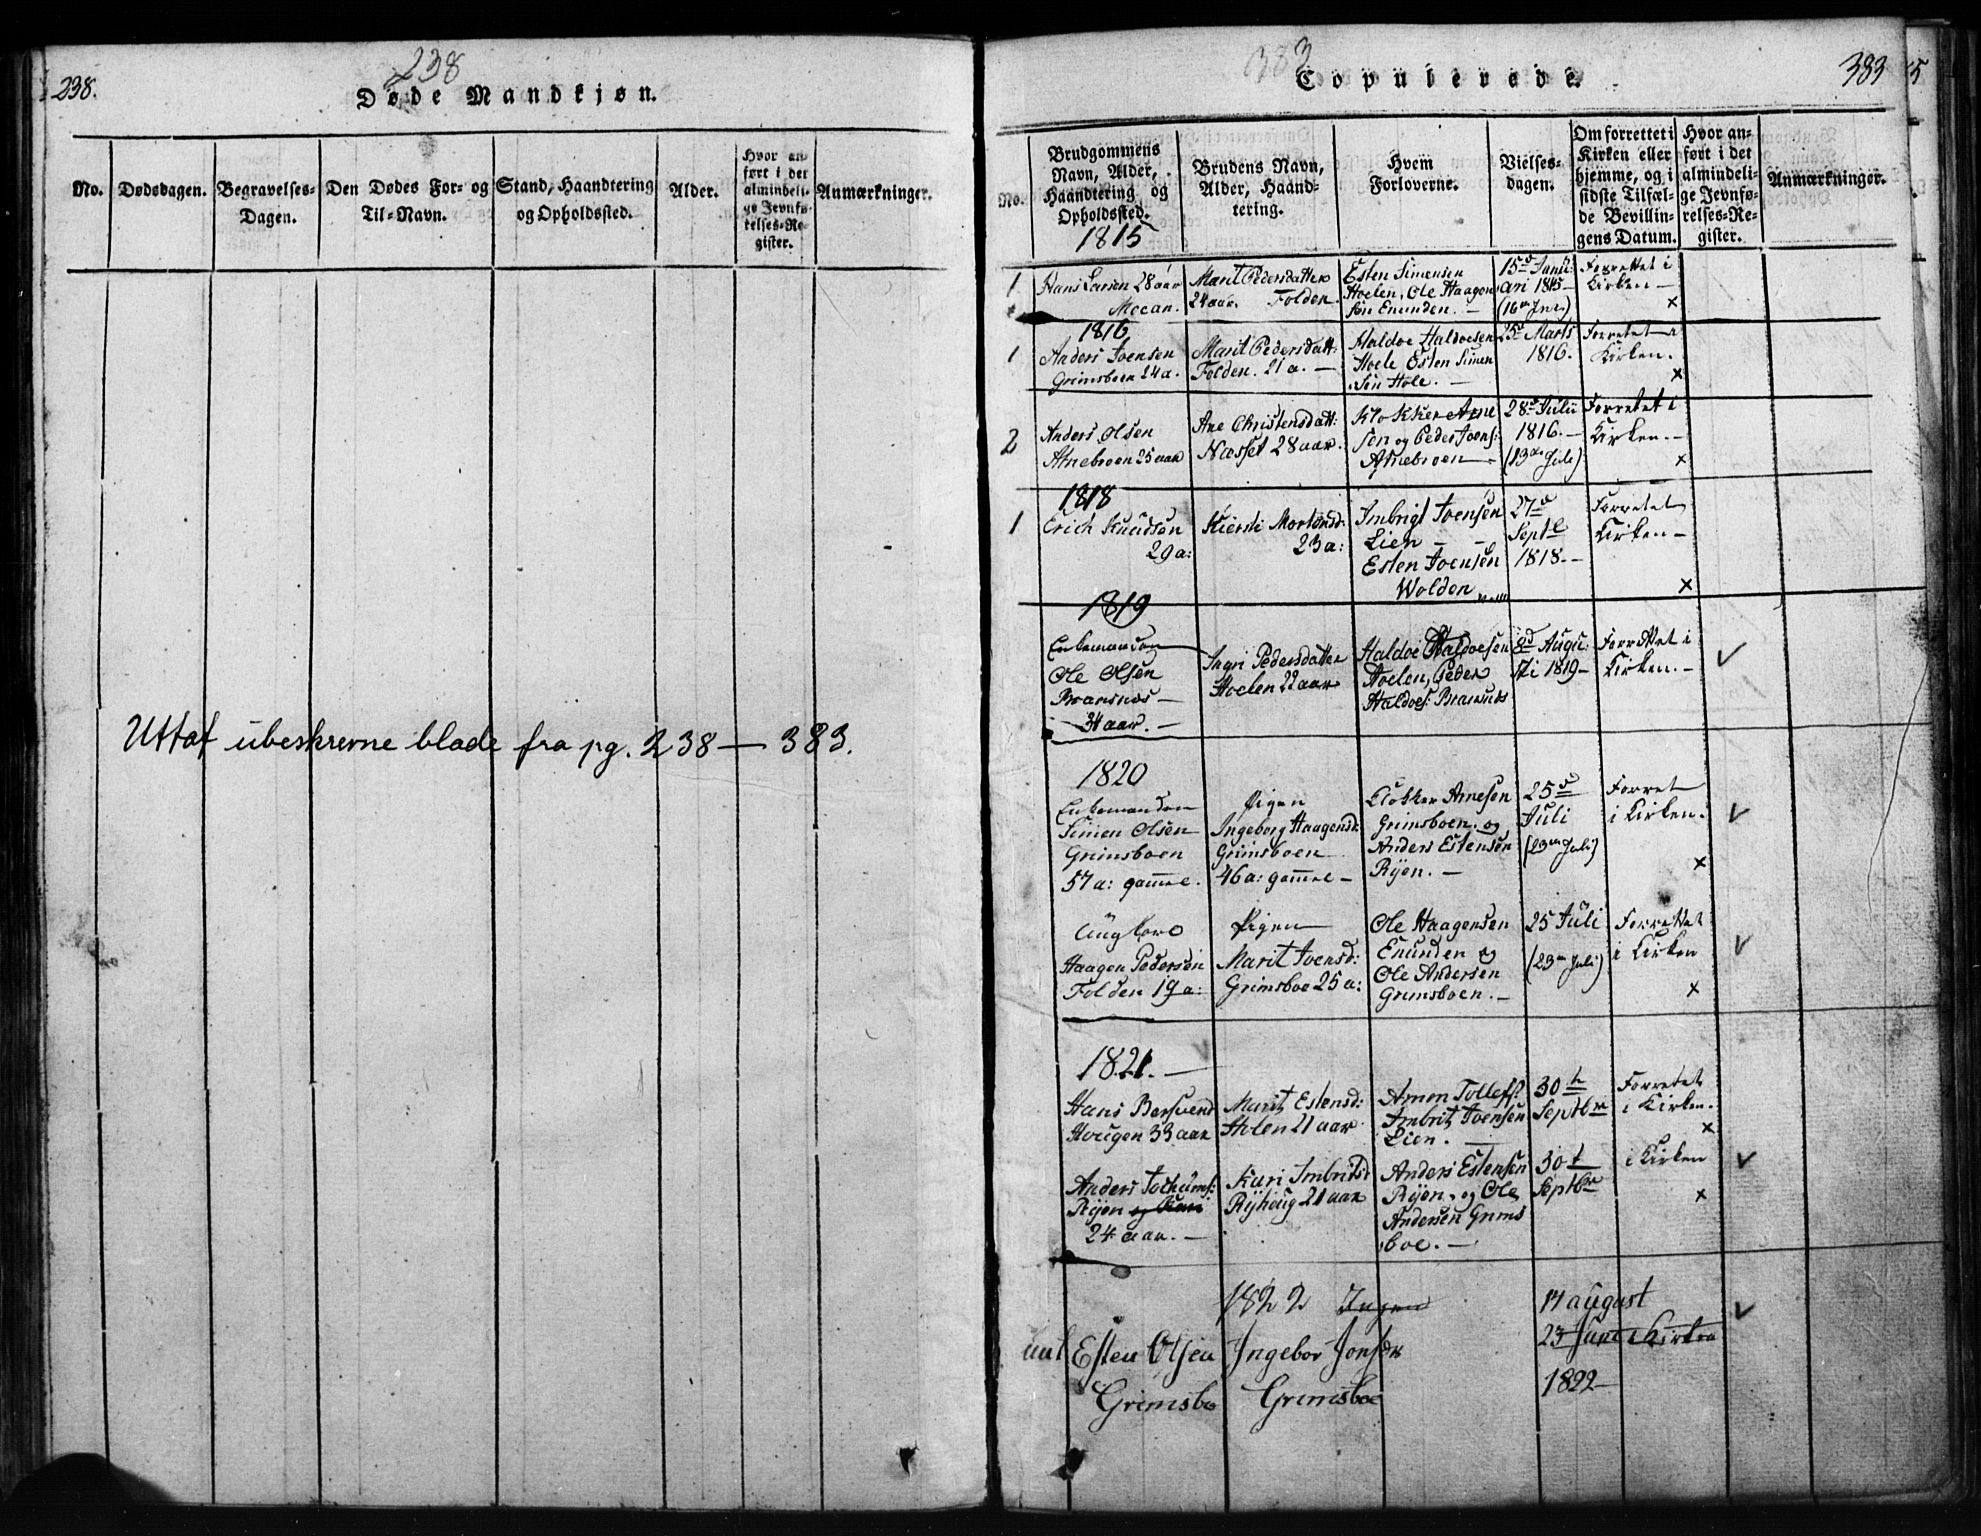 238.
238
Døde Mandkjøn.
No.
Dødsdagen.
Begravelses-
Dagen.
Den Dødes For- og
Til-Navn.
Stand, Haandtering
og Opholdssted.
Alder.
Hvor an-
ført i det
almindeli-
ge Jevnfø-
relses-Re-
gister.
Anmærkninger.
Uttaf ubeskrevne blade fra pg. 238 — 383.
383
Copulerede.
383
No.
Brudgommens
Navn, Alder,
Haandtering og
Opholdssted.
Brudens Navn,
Alder, Haand-
tering.
Hvem
Forloverne.
Vielses-
dagen.
Om forrettet i
Kirken eller
hjemme, og i
sidste Tilfæl-
de Bevillin-
gens Datum.
Hvor an-
ført i det
almindeli-
ge Jevnfø-
relses-Re-
gister.
Anmærkninger.
1815
1
Hans Larsen 28 aar
Moean.
Marit Pedersdatter
24 aar. Folden.
Esten Simensen
Hoelen, Ole Haagen
søn Enunden. —
15d Janu:
ari 1815 —
Forrettet i
Kirken —
x
1816
1
Anders Joensen
Grimsboen 24 a.
Marit Pedersdatt:
Folden. 21 a. —
Haldoe Haldoesen
Hoele Esten Simen
søn Hole. —
25d Marts
1816.
Forretet i
Kirken.
x
2
Anders Olsen
Atnebroen 25 aar
Ane Christensdatt:
Næsset 28 aar.
Klokker Arne
søn og Peder Joens:
Atnebroen —
28d Julii
1816. —
(13de Juli)
Forretet i
Kirken. —
x
1818
1
Erich Knudsen
29 a:
Kiersti Mortensd:
23 a:
Imbrigt Joensen
Lien — —
Esten Joensen
Wolden
27d
Septb
1818. —
Forretet
Kirken —
x
1819
Enkemanden
Ole Olsen
Brænsnæs —
34 aar. —
Ingri Pedersdatter
Hoelen 22 aar
Haldoe Haldoesen
Hoelen, Peder
Haldoes:
8d Augu:
sti 1819 —
Forrettet i
Kirken. —
1820
Enkemanden
Simen Olsen
Grimsboen
57 a: gammel.
Pigen
Ingeborg Haagensd:
Grimsboen
46 a: gammel —
Klokker Arnesen
Grimsboen. og
Anders Estensen
Ryen. —
25d
Juli
(23de Juli)
Forret
i Kirken.
x
Ungkarl
Haagen Pedersen
Folden 19 a:
Pigen
Marit Joensd:
Grimsboe 25 a:
Ole Haagensen
Enunden og
Ole Andersen
Grimsboen. —
25 Juli
(23de Juli)
Forrettet
i Kirken
x
1821. —
Hans Bersvend
Hougen 33 aar
Marit Estensd:
Holen 21 aar
Amon Tollefs:
Imbrit Joensen
Lien. —
30te
Septbr
Forretet
i Kirken.
x
Anders Jochums:
Ryen og Kari
24 aar. —
Kari Imbritsd:
Ryhoug 21 aar
Anders Estensen
Ryen, og Ole
Andersen Grims
boe. —
30t
Septbr
i Kirken
x
1822 Ingen
Esten Olsen
Grimsbo
Ingebor Jonsdr
Grimsboe
14 august
23 Juni i Kirken
1822 —